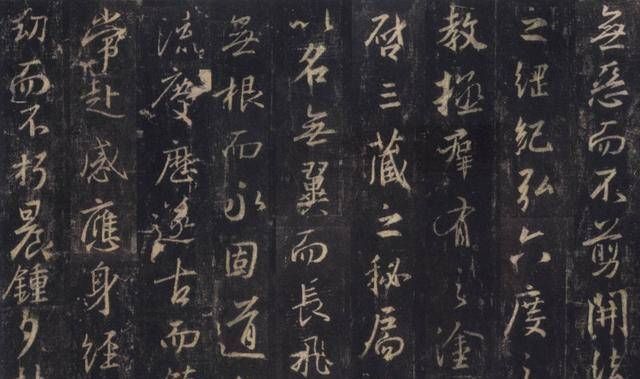 無惡而不剪開法
之綱紀弘六度
教拯群有之塗
啓三藏之秘扃
以名無翼而長飛
無根而永固道
流慶歷遂古而
常赴感應身經
劫而不朽晨鍾夕